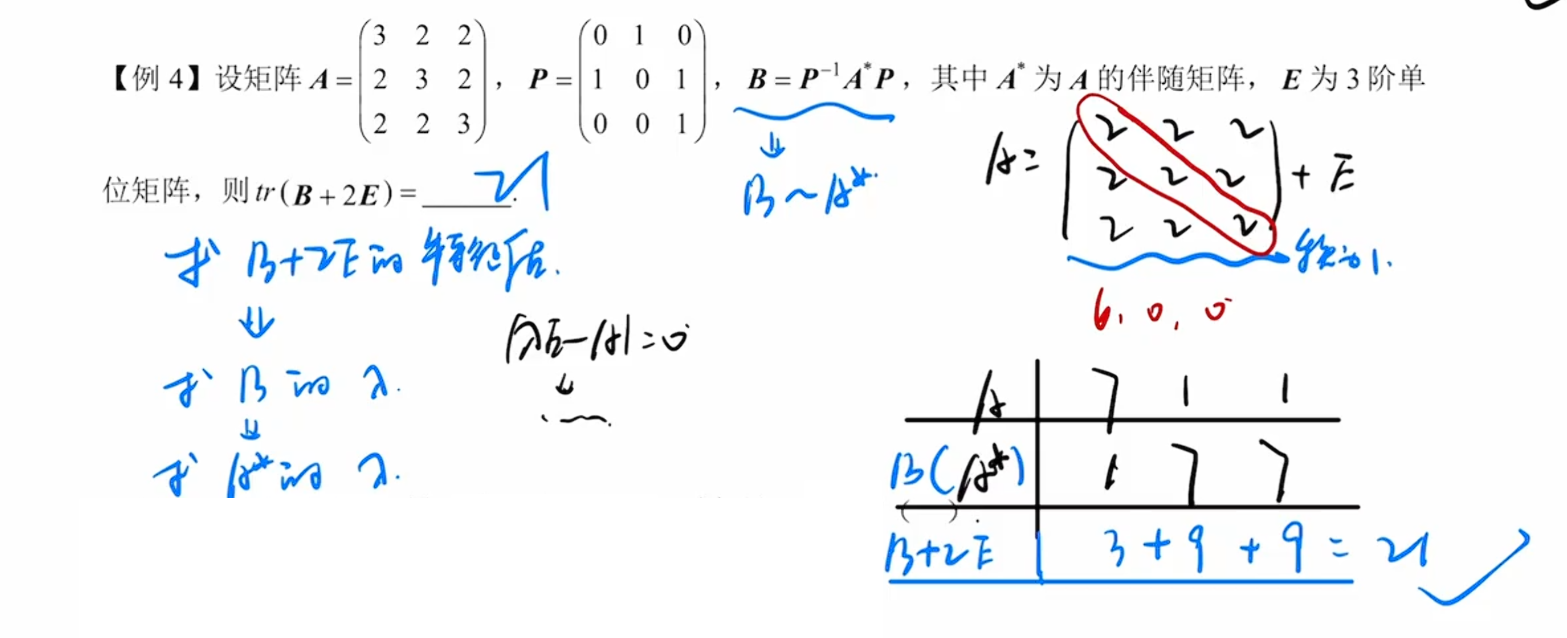 【例 4】设矩阵 A = (3 2 2; 2 3 2; 2 2 3), P = (0 1 0; 1 0 1; 0 0 1), B = P⁻¹A*P, 其中 A* 为 A 的伴随矩阵, E 为 3 阶单
位矩阵, 则 tr(B + 2E) = 21.
↓
B ~ A*.
A = (2 2 2; 2 2 2; 2 2 2) + E
秩为1.
6, 0, 0
求 B+2E 的 特征值.
⇓
求 B 的 λ.
⇓
求 A* 的 λ.
|λE-A| = 0
↓
A | 7 1 1
B(A*) | 1 7 7
B+2E | 3 + 9 + 9 = 21 ✓